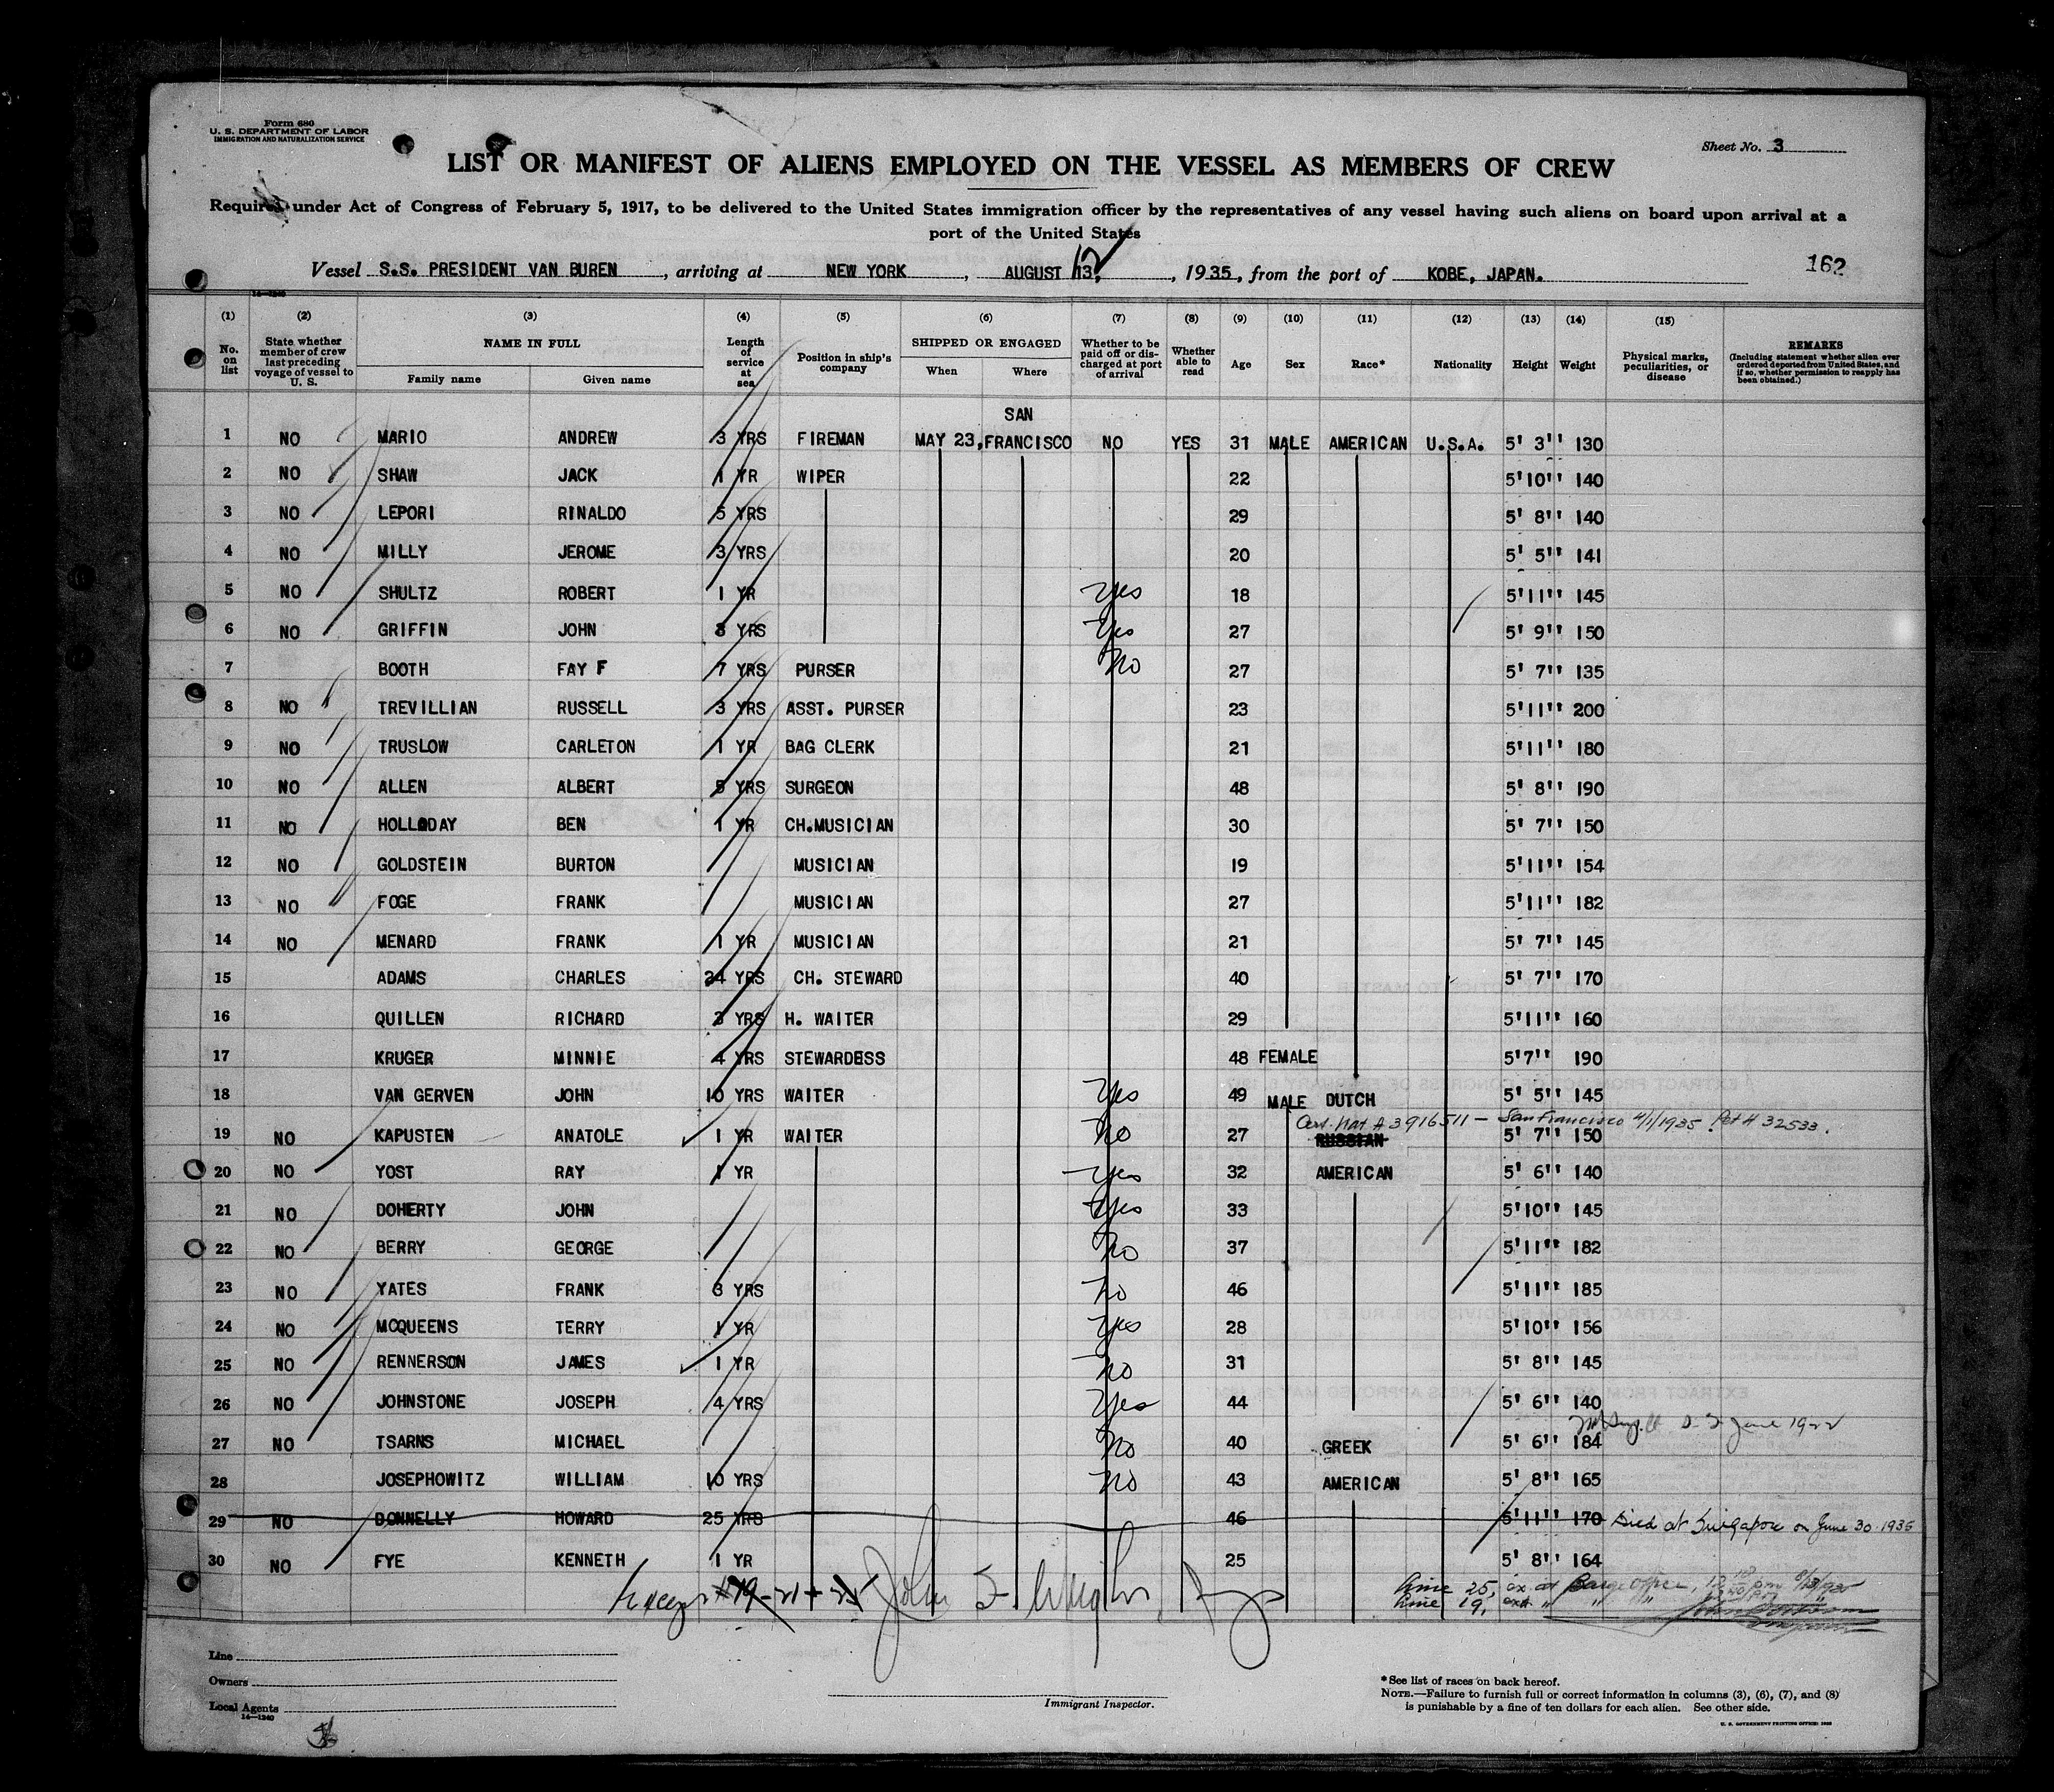 Form 680
U. S. DEPARTMENT OF LABOR
IMMIGRATION AND NATURALIZATION SERVICE
Sheet No. 3
LIST OR MANIFEST OF ALIENS EMPLOYED ON THE VESSEL AS MEMBERS OF CREW
Required under Act of Congress of February 5, 1917, to be delivered to the United States immigration officer by the representatives of any vessel having such aliens on board upon arrival at a
port of the United States
Vessel S.S. PRESIDENT VAN BUREN, arriving at NEW YORK, AUGUST 13, 12, 1935, from the port of KOBE, JAPAN.
162
14—1240
(1) (2) (3) (4) (5) (6) (7) (8) (9) (10) (11) (12) (13) (14) (15)
No. on list
State whether member of crew last preceding voyage of vessel to U. S.
NAME IN FULL
Family name Given name
Length of service at sea
Position in ship's company
SHIPPED OR ENGAGED
When Where
Whether to be paid off or discharged at port of arrival
Whether able to read
Age
Sex
Race*
Nationality
Height
Weight
Physical marks, peculiarities, or disease
REMARKS
(Including statement whether alien ever ordered deported from United States, and if so, whether permission to reapply has been obtained.)
SAN
1 NO MARIO ANDREW 3 YRS FIREMAN MAY 23, FRANCISCO NO YES 31 MALE AMERICAN U.S.A. 5' 3'' 130
2 NO SHAW JACK 1 YR WIPER 22 5'10'' 140
3 NO LEPORI RINALDO 5 YRS 29 5' 8'' 140
4 NO MILLY JEROME 3 YRS 20 5' 5'' 141
5 NO SHULTZ ROBERT 1 YR Yes 18 5'11'' 145
6 NO GRIFFIN JOHN 3 YRS Yes 27 5' 9'' 150
7 BOOTH FAY F 7 YRS PURSER No 27 5' 7'' 135
8 NO TREVILLIAN RUSSELL 3 YRS ASST. PURSER 23 5'11'' 200
9 NO TRUSLOW CARLETON 1 YR BAG CLERK 21 5'11'' 180
10 NO ALLEN ALBERT 5 YRS SURGEON 48 5' 8'' 190
11 NO HOLLODAY BEN 1 YR CH.MUSICIAN 30 5' 7'' 150
12 NO GOLDSTEIN BURTON MUSICIAN 19 5'11'' 154
13 NO FOGE FRANK MUSICIAN 27 5'11'' 182
14 NO MENARD FRANK 1 YR MUSICIAN 21 5' 7'' 145
15 ADAMS CHARLES 24 YRS CH. STEWARD 40 5' 7'' 170
16 QUILLEN RICHARD 3 YRS H. WAITER 29 5'11'' 160
17 KRUGER MINNIE 4 YRS STEWARDESS 48 FEMALE 5'7'' 190
18 VAN GERVEN JOHN 10 YRS WAITER Yes 49 MALE DUTCH 5' 5'' 145
Cert. Nat # 3916511 — San Francisco 4/1/1935 Pet # 32533.
19 NO KAPUSTEN ANATOLE 1 YR WAITER No 27 RUSSIAN 5' 7'' 150
20 NO YOST RAY 1 YR Yes 32 AMERICAN 5' 6'' 140
21 NO DOHERTY JOHN Yes 33 5'10'' 145
22 NO BERRY GEORGE No 37 5'11'' 182
23 NO YATES FRANK 3 YRS No 46 5'11'' 185
24 NO MCQUEENS TERRY 1 YR Yes 28 5'10'' 156
25 NO RENNERSON JAMES 1 YR No 31 5' 8'' 145
26 NO JOHNSTONE JOSEPH 4 YRS Yes 44 5' 6'' 140
June 1922
27 NO TSARNS MICHAEL No 40 GREEK 5' 6'' 184
28 JOSEPHOWITZ WILLIAM 10 YRS No 43 AMERICAN 5' 8'' 165
29 NO DONNELLY HOWARD 25 YRS 46 5'11'' 170 Died at Singapore on June 30-1935
30 NO FYE KENNETH 1 YR 25 5' 8'' 164
Line 25, ex at Barge Office,
Line 19, ex "
Line
Owners
Local Agents
14—1240
Immigrant Inspector.
*See list of races on back hereof.
NOTE.—Failure to furnish full or correct information in columns (3), (6), (7), and (8)
is punishable by a fine of ten dollars for each alien. See other side.
U. S. GOVERNMENT PRINTING OFFICE: